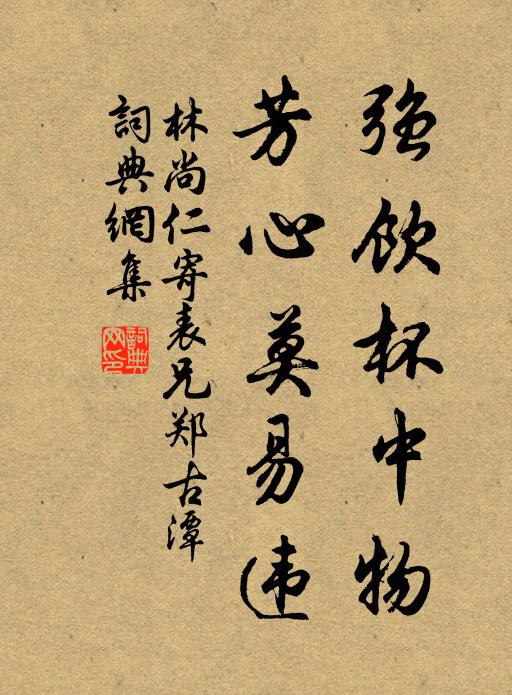 强饮杯中物
芳心莫易违
林尚仁寄表兄郑古潭
詞典網集
詞典网印